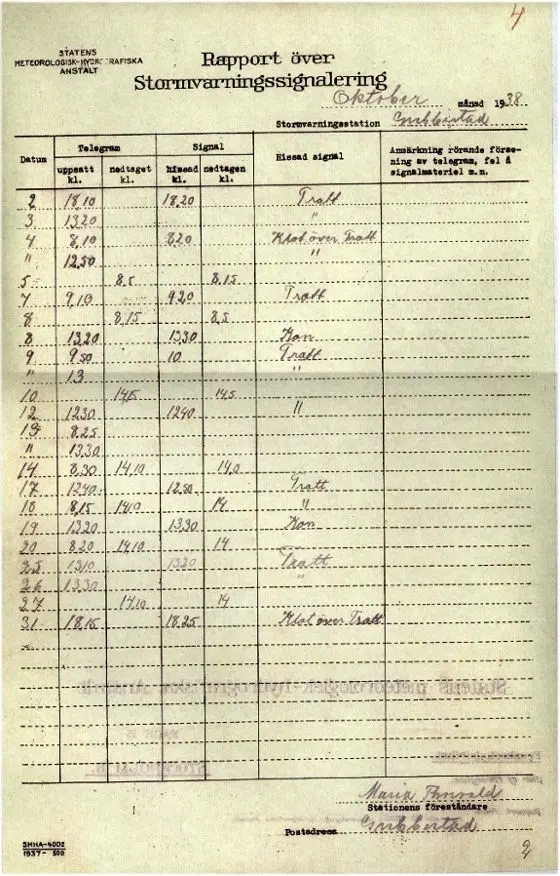 4
STATENS
METEOROLOGISK-HYDROGRAFISKA
ANSTALT
Rapport över
Stormvarningssignalering
Oktober månad 1938
Stormvarningsstation Grebbestad
Datum Telegram Signal Hissad signal Anmärkning rörande förse-
ning av telegram, fel å
signalmateriel m.m.
uppsatt kl. nedtaget kl. hissad kl. nedtagen kl.
2 18,10 18,20 Tratt
3 13,20 "
4 8,10 8,20 Klot över Tratt
" 12,50 "
5 8,5 8,15
7 9,10 9,20 Tratt
8 8,15 8,5
8 13,20 13,30 Kon
9 9,50 10 Tratt
" 13 "
10 14,5 14,5
12 12,30 12,40 "
13 8,25
" 13,30
14 8,30 14,10 14,0
17 12,40 12,50 Tratt
18 8,15 14,10 14 "
19 13,20 13,30 Kon
20 8,20 14,10 14
25 13,10 13,20 Tratt
26 13,30 "
27 14,10 14
31 18,15 18,25 Klot över Tratt
Maria
Stationens föreståndare
Postadress Grebbestad
SMHA-4002
1937- 500
2